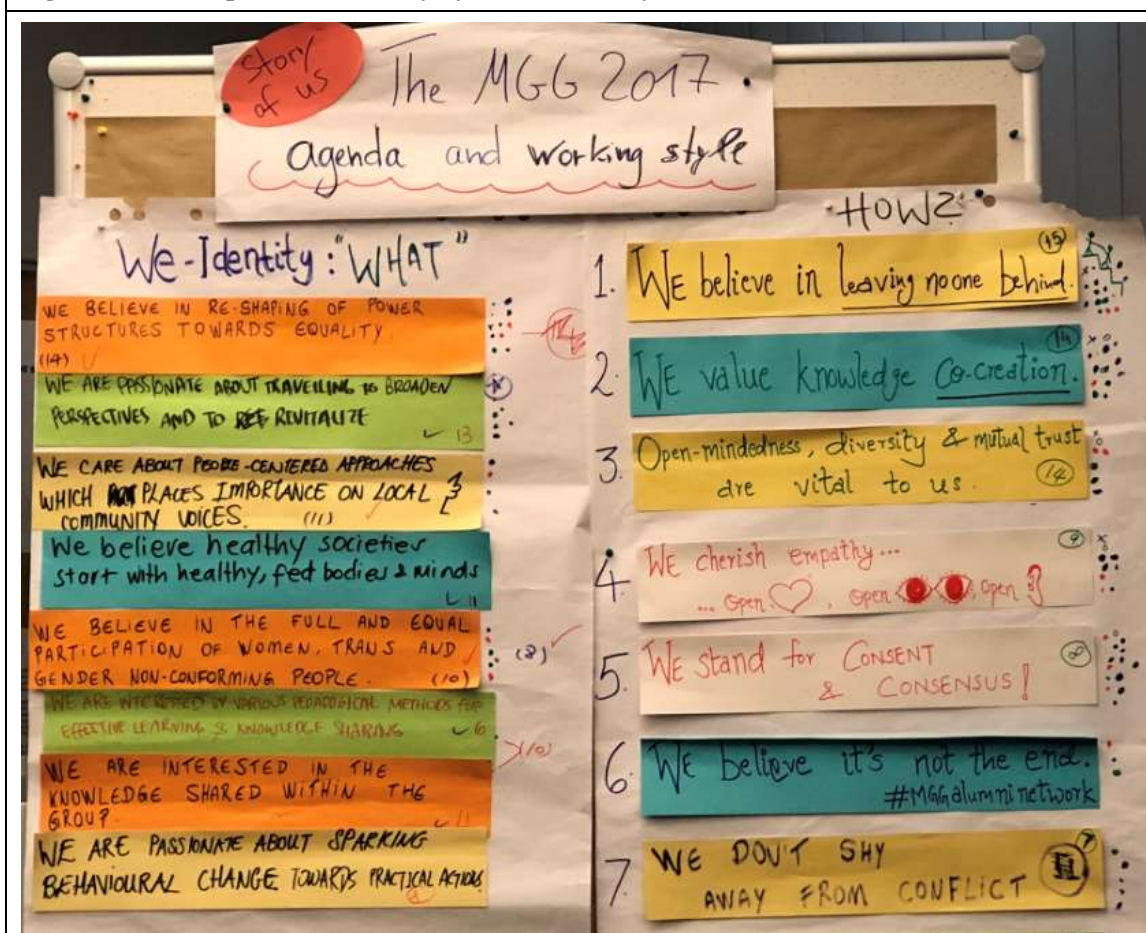 Story
of us
The MGG 2017
agenda and working style
We-Identity: "WHAT"
WE BELIEVE IN RE-SHAPING OF POWER
STRUCTURES TOWARDS EQUALITY.
(14)
WE ARE PASSIONATE ABOUT TRAVELLING TO BROADEN
PERSPECTIVES AND TO REVITALIZE
13
WE CARE ABOUT PEOPLE-CENTERED APPROACHES
WHICH PLACES IMPORTANCE ON LOCAL
COMMUNITY VOICES. (11)
We believe healthy societies
start with healthy, fed bodies & minds
11
WE BELIEVE IN THE FULL AND EQUAL
PARTICIPATION OF WOMEN, TRANS AND
GENDER NON-CONFORMING PEOPLE. (10)
(8)
WE ARE INTERESTED BY VARIOUS PEDAGOGICAL METHODS FOR
EFFECTIVE LEARNING & KNOWLEDGE SHARING 6
(10)
WE ARE INTERESTED IN THE
KNOWLEDGE SHARED WITHIN THE
GROUP. 11
WE ARE PASSIONATE ABOUT SPARKING
BEHAVIOURAL CHANGE TOWARDS PRACTICAL ACTIONS
HOW?
1. WE believe in leaving no one behind. (15)
2. WE value knowledge co-creation. (14)
3. Open-mindedness, diversity & mutual trust
are vital to us. (14)
4. WE cherish empathy... (9)
... open, open, open
5. WE stand for CONSENT (8)
& CONSENSUS!
6. WE believe it's not the end.
#MGGalumninetwork
7. WE DON'T SHY (7)
AWAY FROM CONFLICT